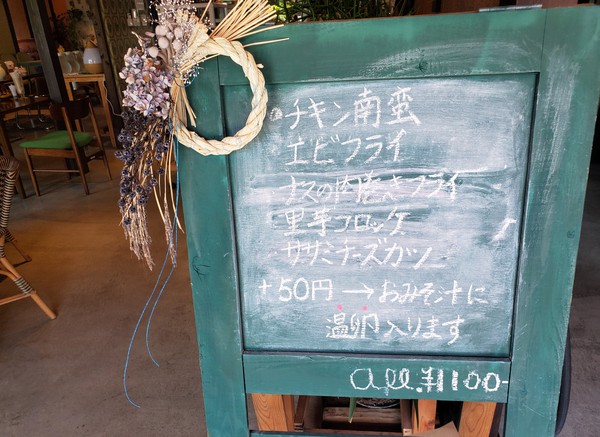 ・チキン南蛮
エビフライ
ナスの肉巻きフライ
里芋コロッケ
ササミチーズカツ
+50円→おみそ汁に
温卵入ります
all.¥1100-